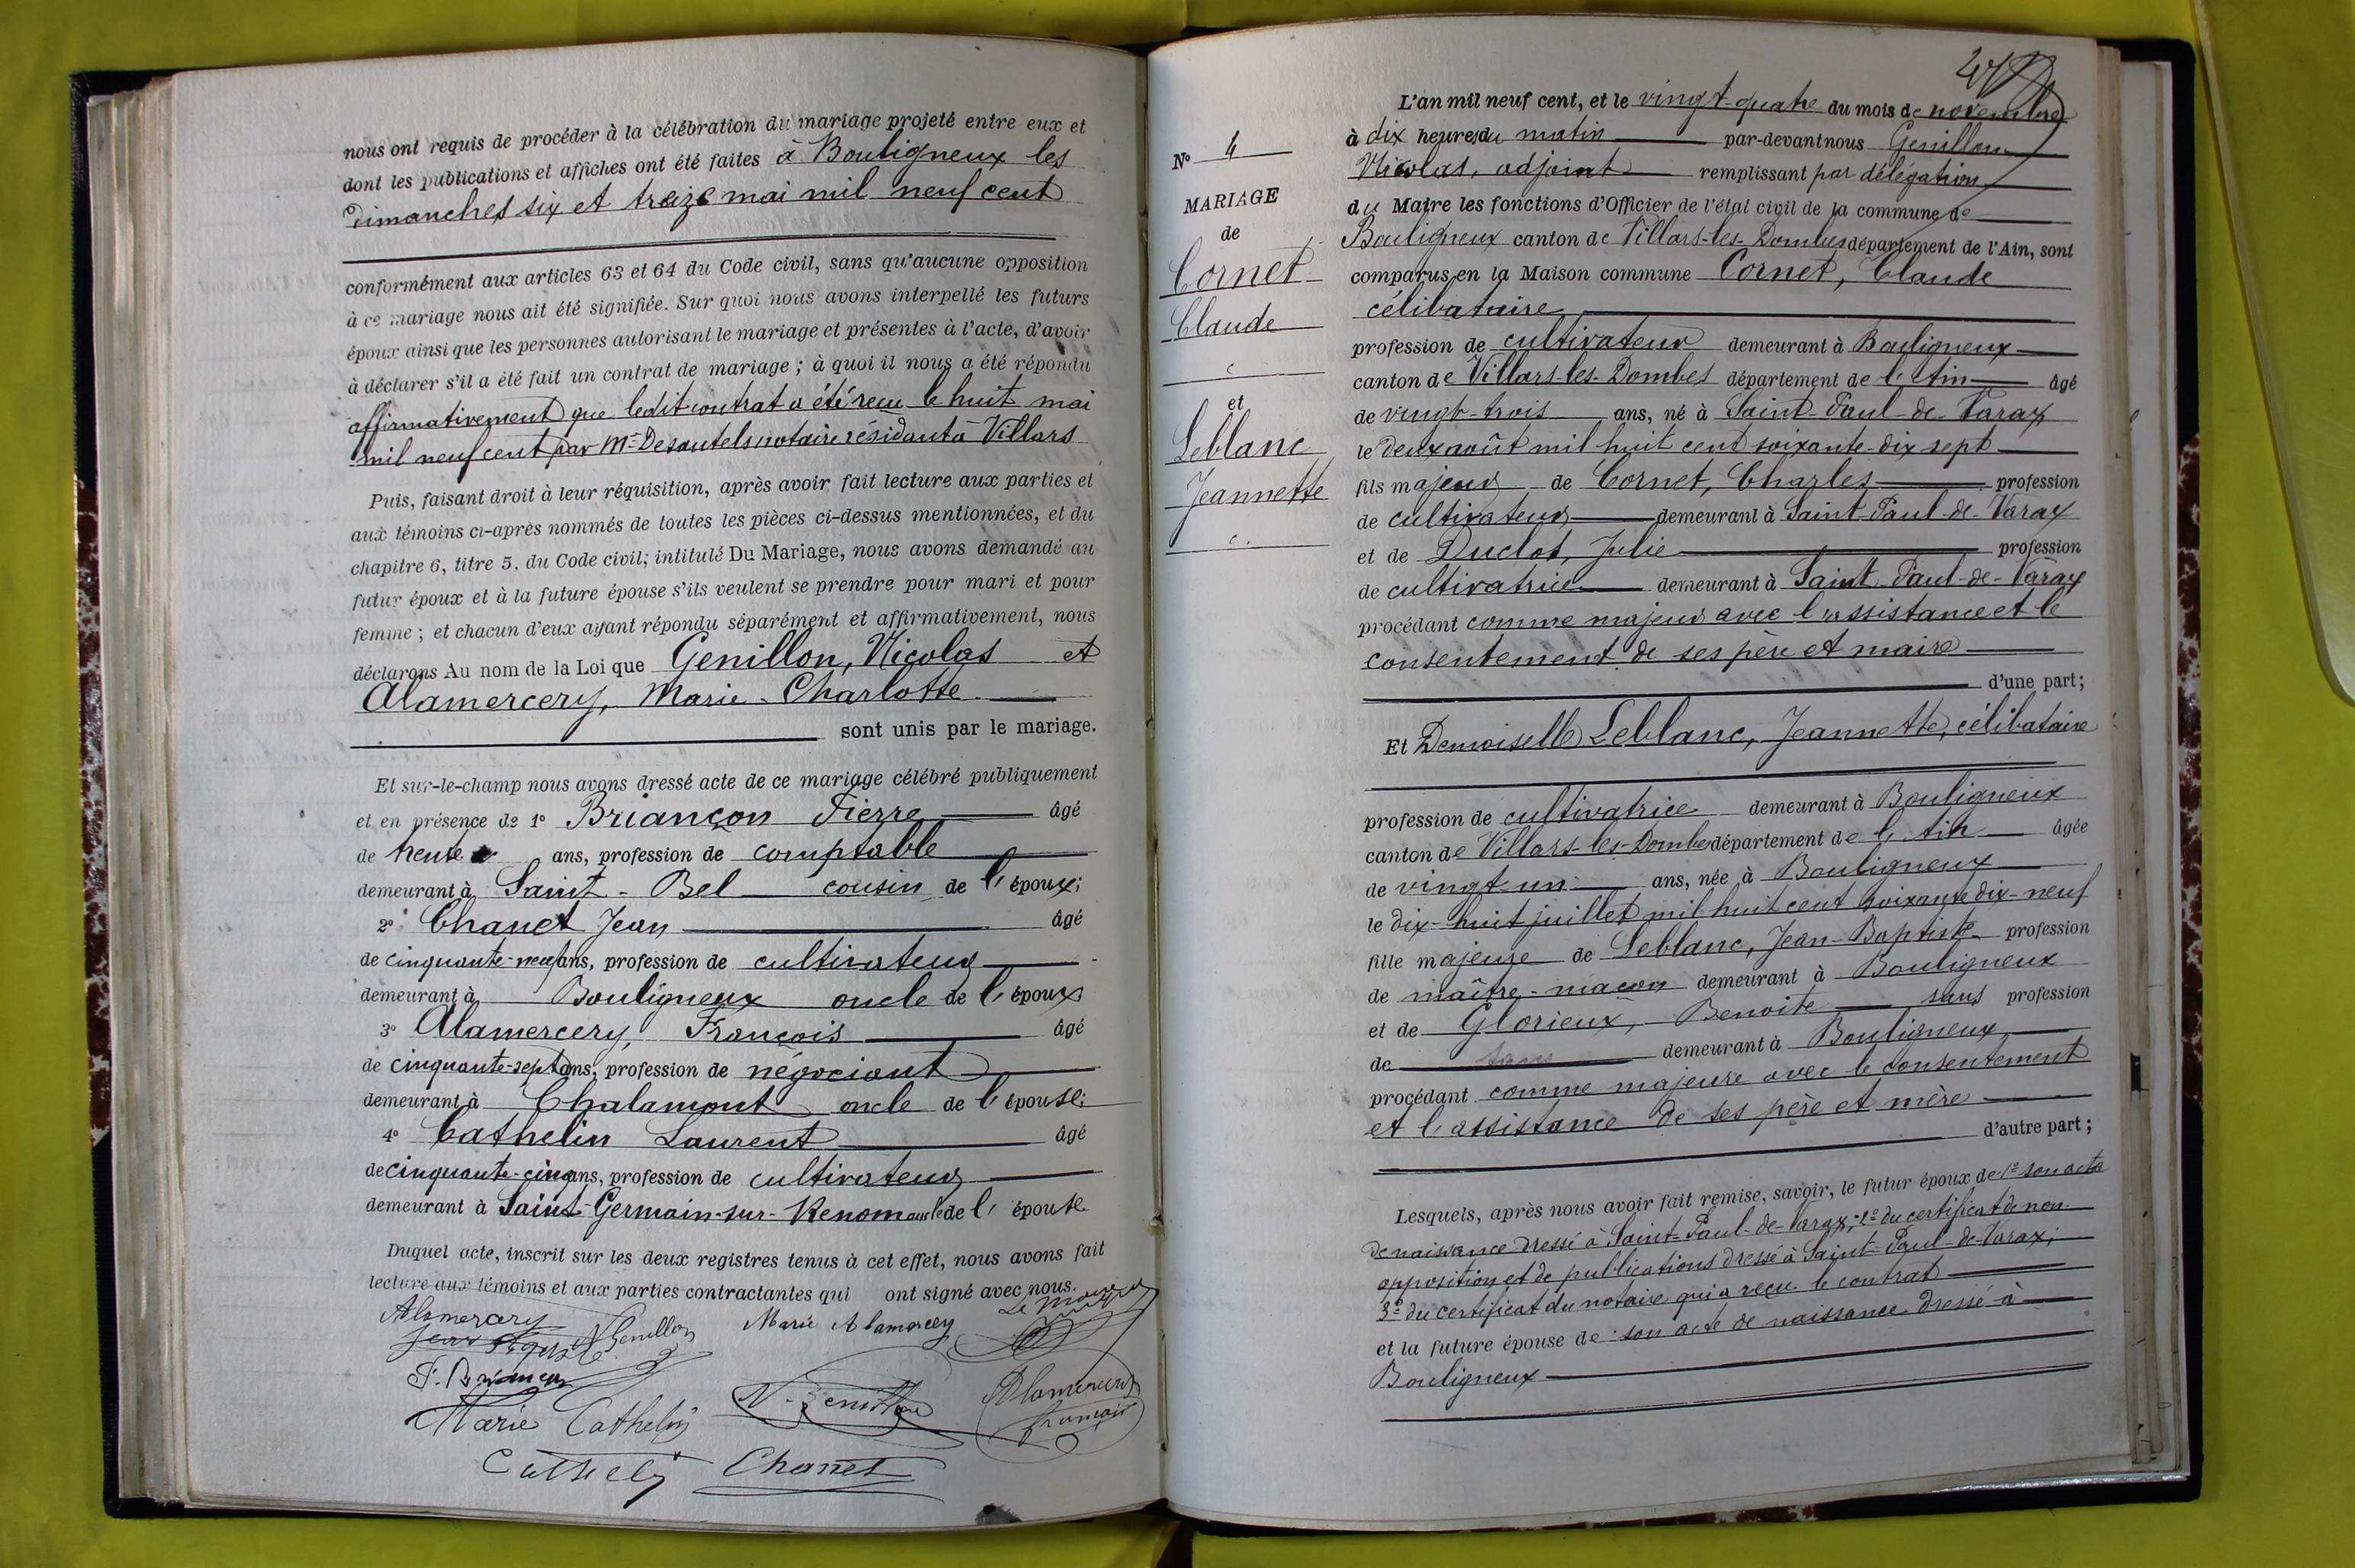 nous ont requis de procéder à la célébration du mariage projeté entre eux et
dont les publications et affiches ont été faites à Bouligneux les
dimanches six et treize mai mil neuf cent
conformément aux articles 63 et 64 du Code civil, sans qu'aucune opposition
à ce mariage nous ait été signifiée. Sur quoi nous avons interpellé les futurs
époux ainsi que les personnes autorisant le mariage et présentes à l'acte, d'avoir
à déclarer s'il a été fait un contrat de mariage ; à quoi il nous a été répondu
affirmativement que ledit contrat a été reçu le huit mai
mil neuf cent par Me Desautels notaire résidant à Villars
Puis, faisant droit à leur réquisition, après avoir fait lecture aux parties et
aux témoins ci-après nommés de toutes les pièces ci-dessus mentionnées, et du
chapitre 6, titre 5, du Code civil; intitulé Du Mariage, nous avons demandé au
futur époux et à la future épouse s'ils veulent se prendre pour mari et pour
femme ; et chacun d'eux ayant répondu séparément et affirmativement, nous
déclarons Au nom de la Loi que Genillon, Nicolas et
Alamercery, Marie-Charlotte.
sont unis par le mariage.
Et sur-le-champ nous avons dressé acte de ce mariage célébré publiquement
et en présence de 1° Briançon Pierre âgé
de trente ans, profession de comptable
demeurant à Saint-Bel cousin de l'époux;
2° Chanet Jean âgé
de cinquante-neuf ans, profession de cultivateur
demeurant à Bouligneux oncle de l'époux
3° Alamercery, François âgé
de cinquante-sept ans, profession de négociant
demeurant à Chalamont oncle de l'épouse;
4° Cathelin Laurent âgé
de cinquante-cinq ans, profession de cultivateur
demeurant à Saint-Germain-sur-Renom oncle de l'épouse.
Duquel acte, inscrit sur les deux registres tenus à cet effet, nous avons fait
lecture aux témoins et aux parties contractantes qui ont signé avec nous.
Le Maire
Alamercery
Genillon
Marie Alamercery
P. Briançon
Marie Cathelin
N. Genillon
Alamercery
François
Cathelin
Chanet
N° 4
MARIAGE
de
Cornet
Claude
et
Leblanc
Jeannette
L'an mil neuf cent, et le vingt-quatre du mois de novembre
à dix heures du matin par-devant nous Genillon
Nicolas, adjoint remplissant par délégation
du Maire les fonctions d'Officier de l'état civil de la commune de
Bouligneux canton de Villars-les-Dombes département de l'Ain, sont
comparus en la Maison commune Cornet, Claude
célibataire
profession de cultivateur demeurant à Bouligneux
canton de Villars-les-Dombes département de l'Ain âgé
de vingt-trois ans, né à Saint-Paul-de-Varax
le deux août mil huit cent soixante-dix sept
fils majeur de Cornet, Charles profession
de cultivateur demeurant à Saint-Paul-de-Varax
et de Duclos, Julie profession
de cultivatrice demeurant à Saint-Paul-de-Varax
procédant comme majeur avec l'assistance et le
consentement de ses père et maire
d'une part;
Et Demoiselle Leblanc, Jeannette, célibataire
profession de cultivatrice demeurant à Bouligneux
canton de Villars-les-Dombes département de l'Ain âgée
de vingt-un ans, née à Bouligneux
le dix-huit juillet mil huit cent soixante dix-neuf
fille majeure de Leblanc, Jean-Baptiste profession
de maître-maçon demeurant à Bouligneux
et de Glorieux, Benoite sans profession
de sans demeurant à Bouligneux
procédant comme majeure avec le consentement
et l'assistance de ses père et mère
d'autre part;
Lesquels, après nous avoir fait remise, savoir, le futur époux de 1° son acte
de naissance dressé à Saint-Paul-de-Varax; 2° du certificat de non
opposition et de publications dressé à Saint-Paul-de-Varax;
3° du certificat du notaire qui a reçu le contrat
et la future épouse de : son acte de naissance dressé à
Bouligneux